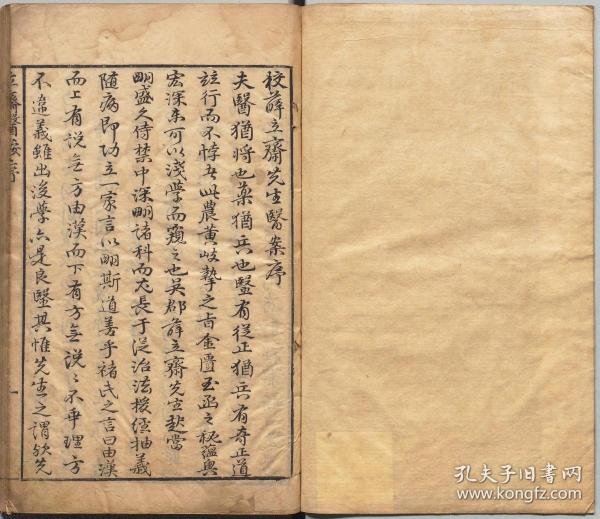 校薛立齋先生醫案序
夫醫猶將也藥猶兵也醫有從正猶兵有奇正道
竝行而不悖者此農黃岐摯之旨金匱玉函之秘蘊奧
宏深未可以淺學而窺之也吳郡薛立齋先生赴當
明盛久侍禁中深明諸科而尤長于從治法援經抽義
隨病即功立一家言以明斯道善乎褚氏之言曰由漢
而上有說無方由漢而下有方無說〻不乖理方
不違義雖出後學亦是良醫其惟先生之謂歟先
立齋醫案序
一
孔夫子旧书网
www.kongfz.com